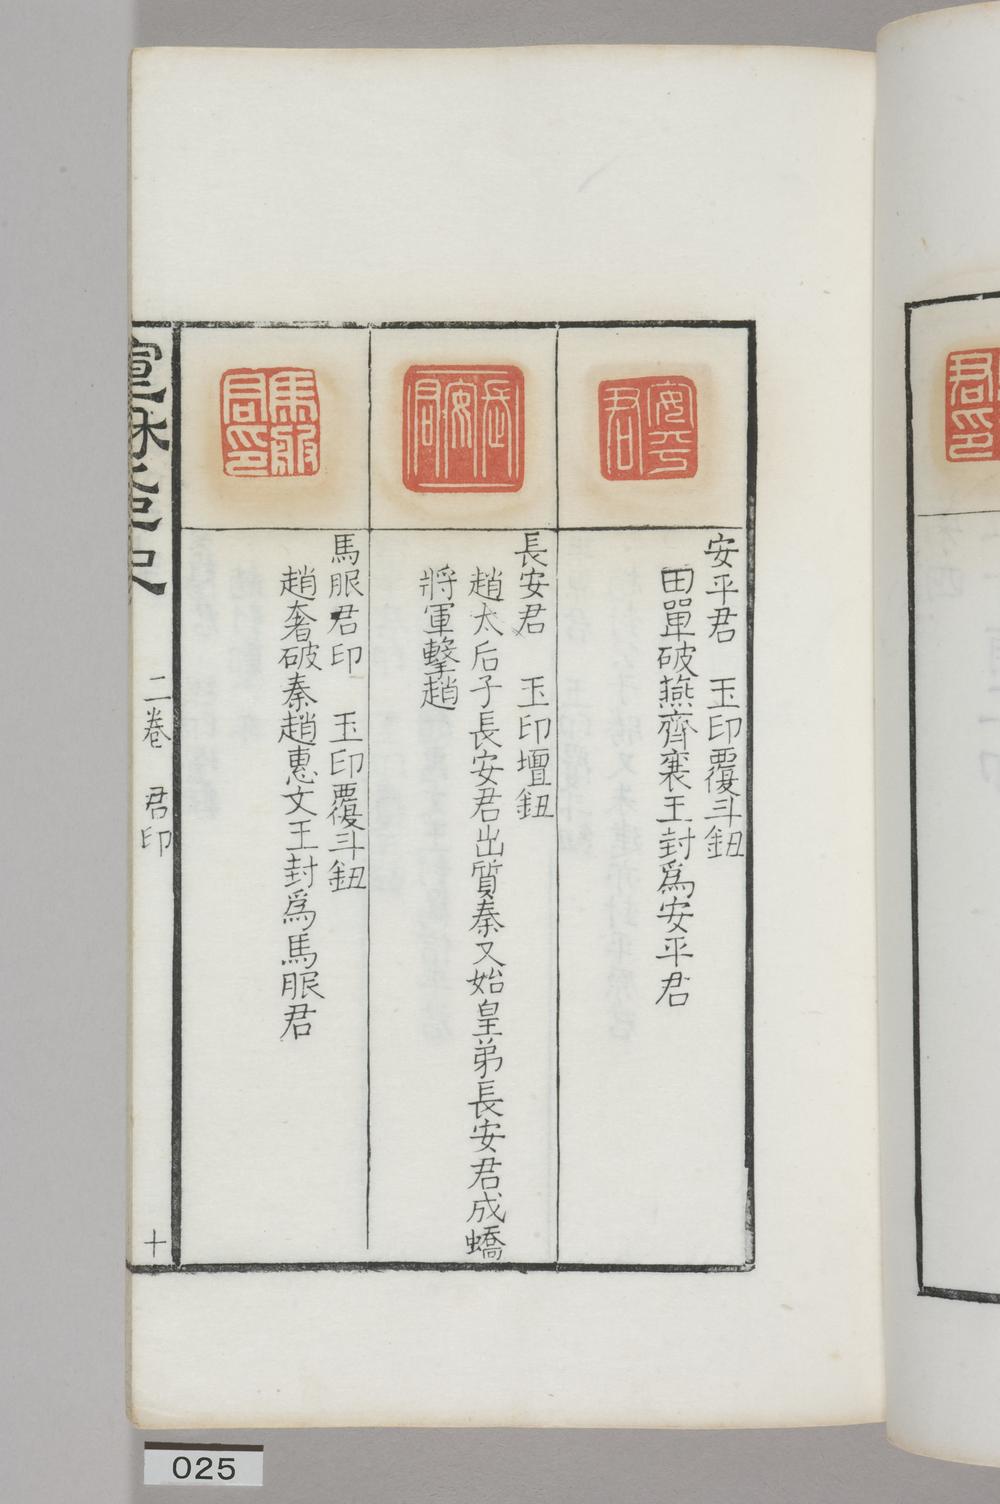 安平
君
安平君　玉印覆斗鈕
田單破燕齊襄王封爲安平君
長安君
長安君　玉印壇鈕
趙太后子長安君出質秦又始皇弟長安君成蟜
將軍擊趙
馬服
君印
馬服君印　玉印覆斗鈕
趙奢破秦趙惠文王封爲馬服君
宣和集古印史
二卷　君印
十
君印
025